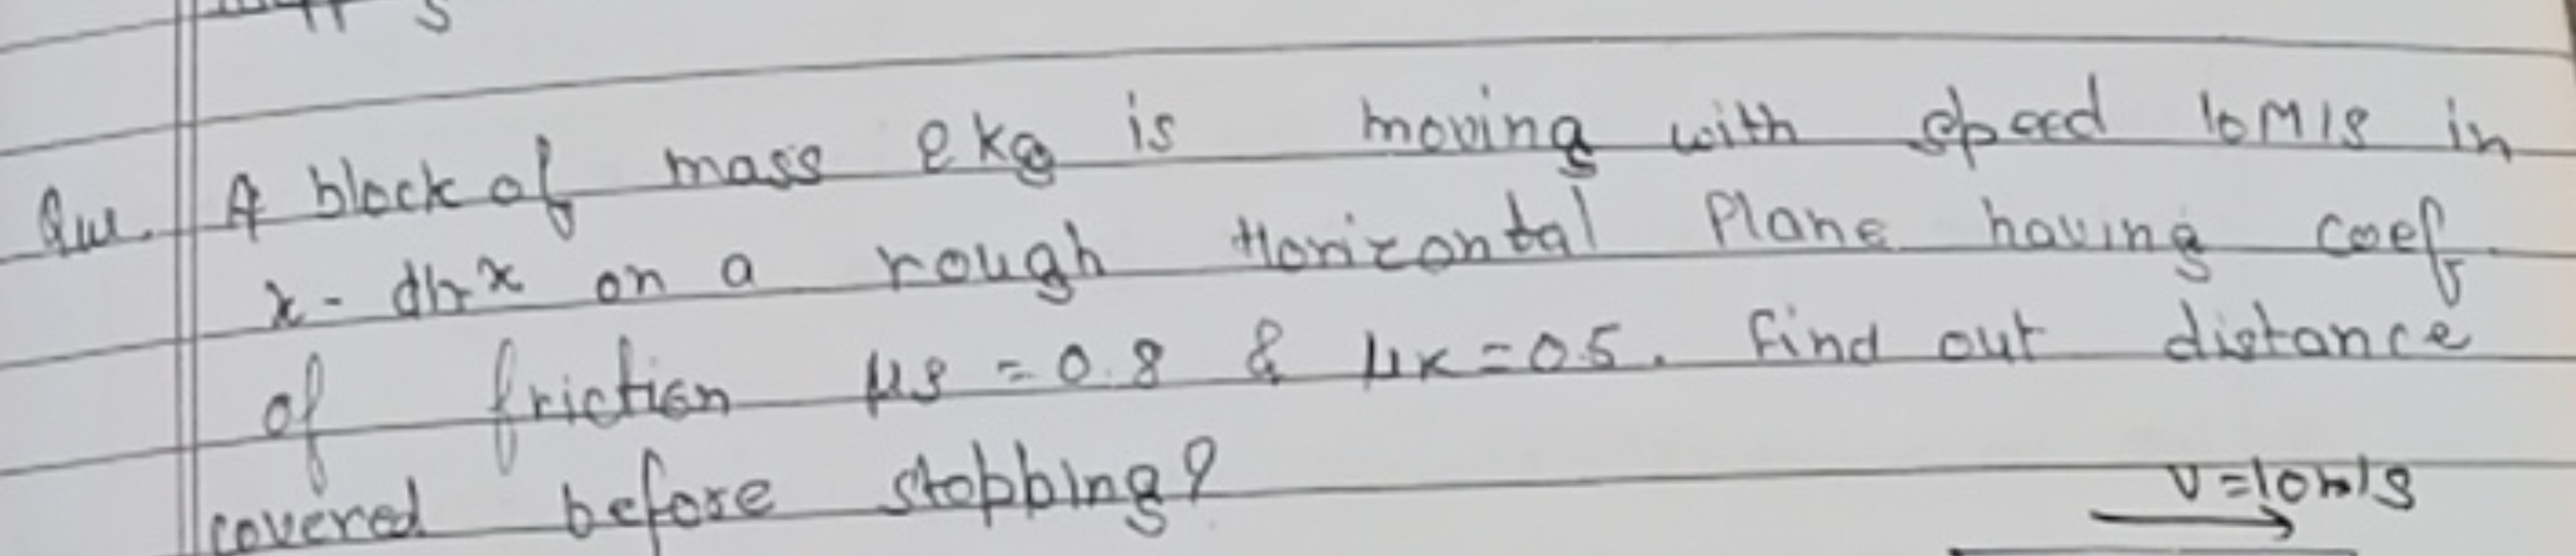 Que. A block of mass 2kg is moving with speed 10M/s in
x - dirx on a rough Horizontal Plane having coef.
of friction μs = 0.8 & μk = 0.5. Find out distance
covered before stopping?
v = 10m/s